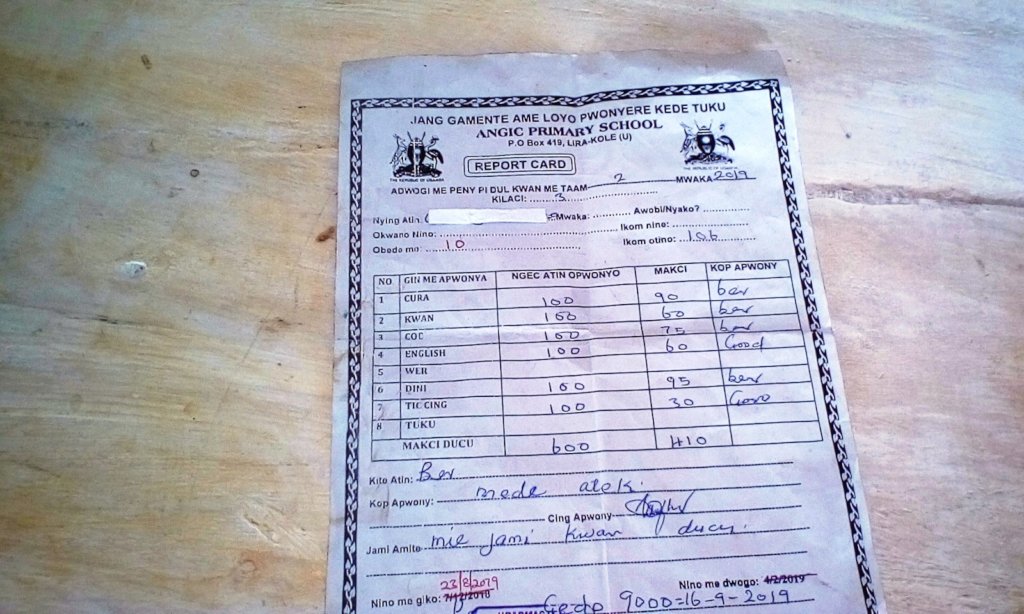 JANG GAMENTE AME LOYO PWONYERE KEDE TUKU
ANGIC PRIMARY SCHOOL
P.O Box 419, LIRA-KOLE (U)
REPORT CARD
THE REPUBLIC OF UGANDA
ADWOGI ME PENY PI DUL KWAN ME TAAM 2 MWAKA 2019
KILACI: 3
Nying Atin: Mwaka: Awobi/Nyako?
Okwano Nino: Ikom nino:
Obedo mo: 10 Ikom otino: 106
NO GIN ME APWONYA NGEC ATIN OPWONYO MAKCI KOP APWONY
1 CURA 100 90 ber
2 KWAN 100 60 ber
3 COC 100 75 ber
4 ENGLISH 100 60 Good
5 WER
6 DINI 100 95 ber
7 TIC CING 100 30 Good
8 TUKU
MAKCI DUCU 600 410
Kite Atin: Ber
Kop Apwony: mede atek.
Cing Apwony
Jami Amito mie jami kwan ducu.
23/8/2019
Nino me giko: 7/12/2018 Nino me dwogo: 4/2/2019
9000= 16-9-2019